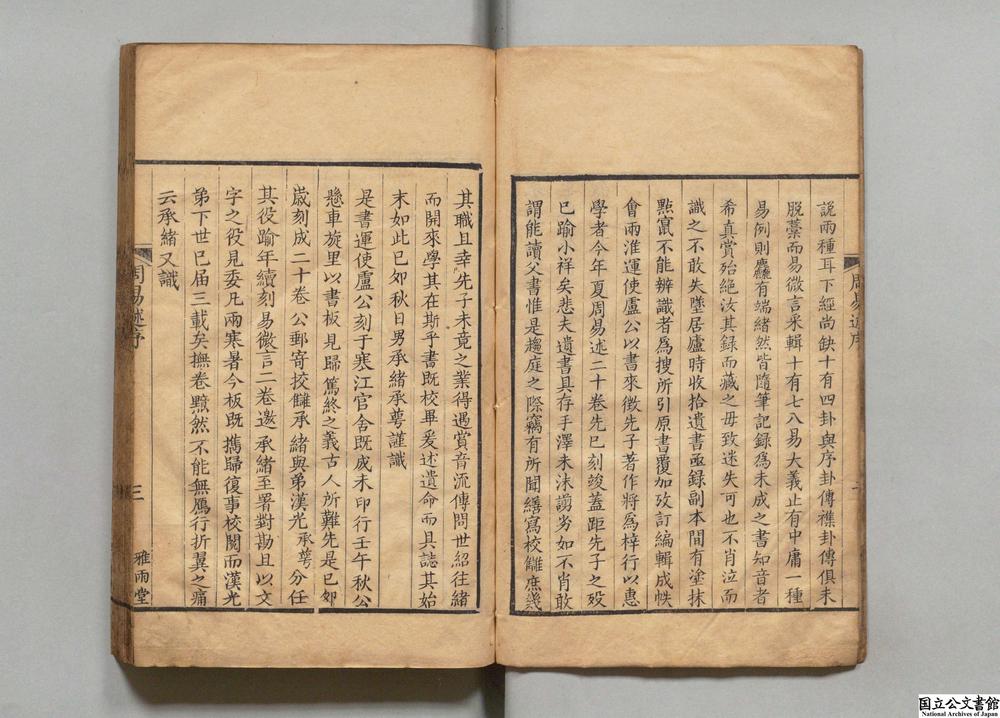 說兩種耳下經尚缺十有四卦與序卦傳襍卦傳俱未
脫藁而易微言采輯十有七八易大義止有中庸一種
易例則麤有端緒然皆隨筆記録為未成之書知音者
希真賞殆絶汝其録而藏之毋致迷失可也不肖泣而
識之不敢失墜居廬時收拾遺書亟録副本間有塗抹
點竄不能辨識者為搜所引原書覆加攷訂編輯成帙
會兩淮運使盧公以書來徵先子著作將為梓行以惠
學者今年夏周易述二十卷先已刻竣蓋距先子之歿
已踰小祥矣悲夫遺書具存手澤未沬謭劣如不肖敢
謂能讀父書惟是趨庭之際竊有所聞繕寫校讎庶幾
其職且幸先子未竟之業得遇賞音流傳問世紹往緒
而開來學其在斯乎書既校畢爰述遺命而具誌其始
末如此己卯秋日男承緒承萼謹識
是書運使盧公刻于寒江官舍既成未印行壬午秋公
懸車旋里以書板見歸篤終之義古人所難先是己卯
嵗刻成二十卷公郵寄挍讎承緒與弟漢光承萼分任
其役踰年續刻易微言二卷邀承緒至署對勘且以文
字之役見委凡兩寒暑今板既攜歸復事校閱而漢光
弟下世已屆三載矣撫卷黯然不能無鴈行折翼之痛
云承緒又識
周易述序
三
雅雨堂
国立公文書館
National Archives of Japan